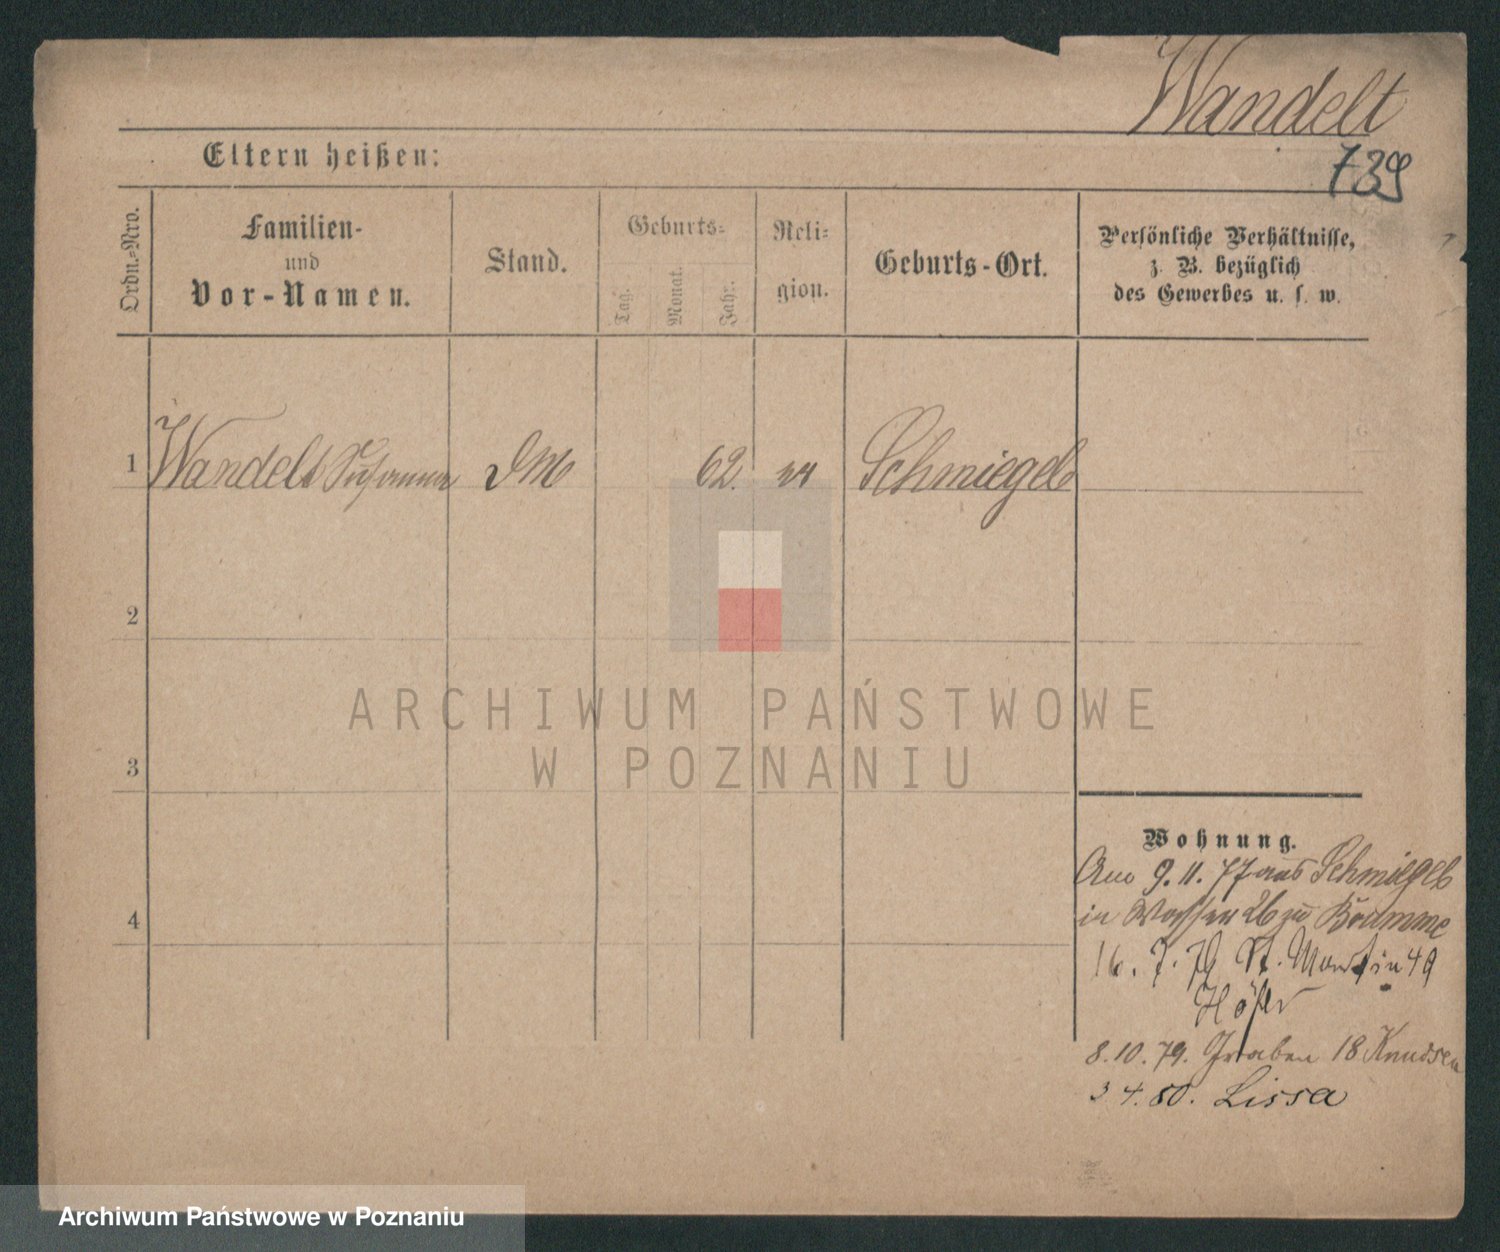 Wandelt
739
Eltern heißen:
Ordn.-Nro.
Familien-
und
Vor-Namen.
Stand.
Geburts-
Tag.
Monat.
Jahr.
Reli-
gion.
Geburts-Ort.
Persönliche Verhältnisse,
z. B. bezüglich
des Gewerbes u. s. w.
1 Wandelt Susanna DM 62. Schmiegel
2
3
4
Wohnung.
Am 9.11.77 aus Schmiegel
in Wasser 26 zu
16.7.79 St. Martin 49
8.10.79. Graben 18 Knudsen
3 4.80. Lissa
ARCHIWUM PAŃSTWOWE
W POZNANIU
Archiwum Państwowe w Poznaniu